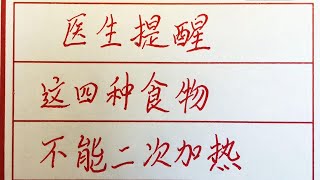 医生提醒
这四种食物
不能二次加热